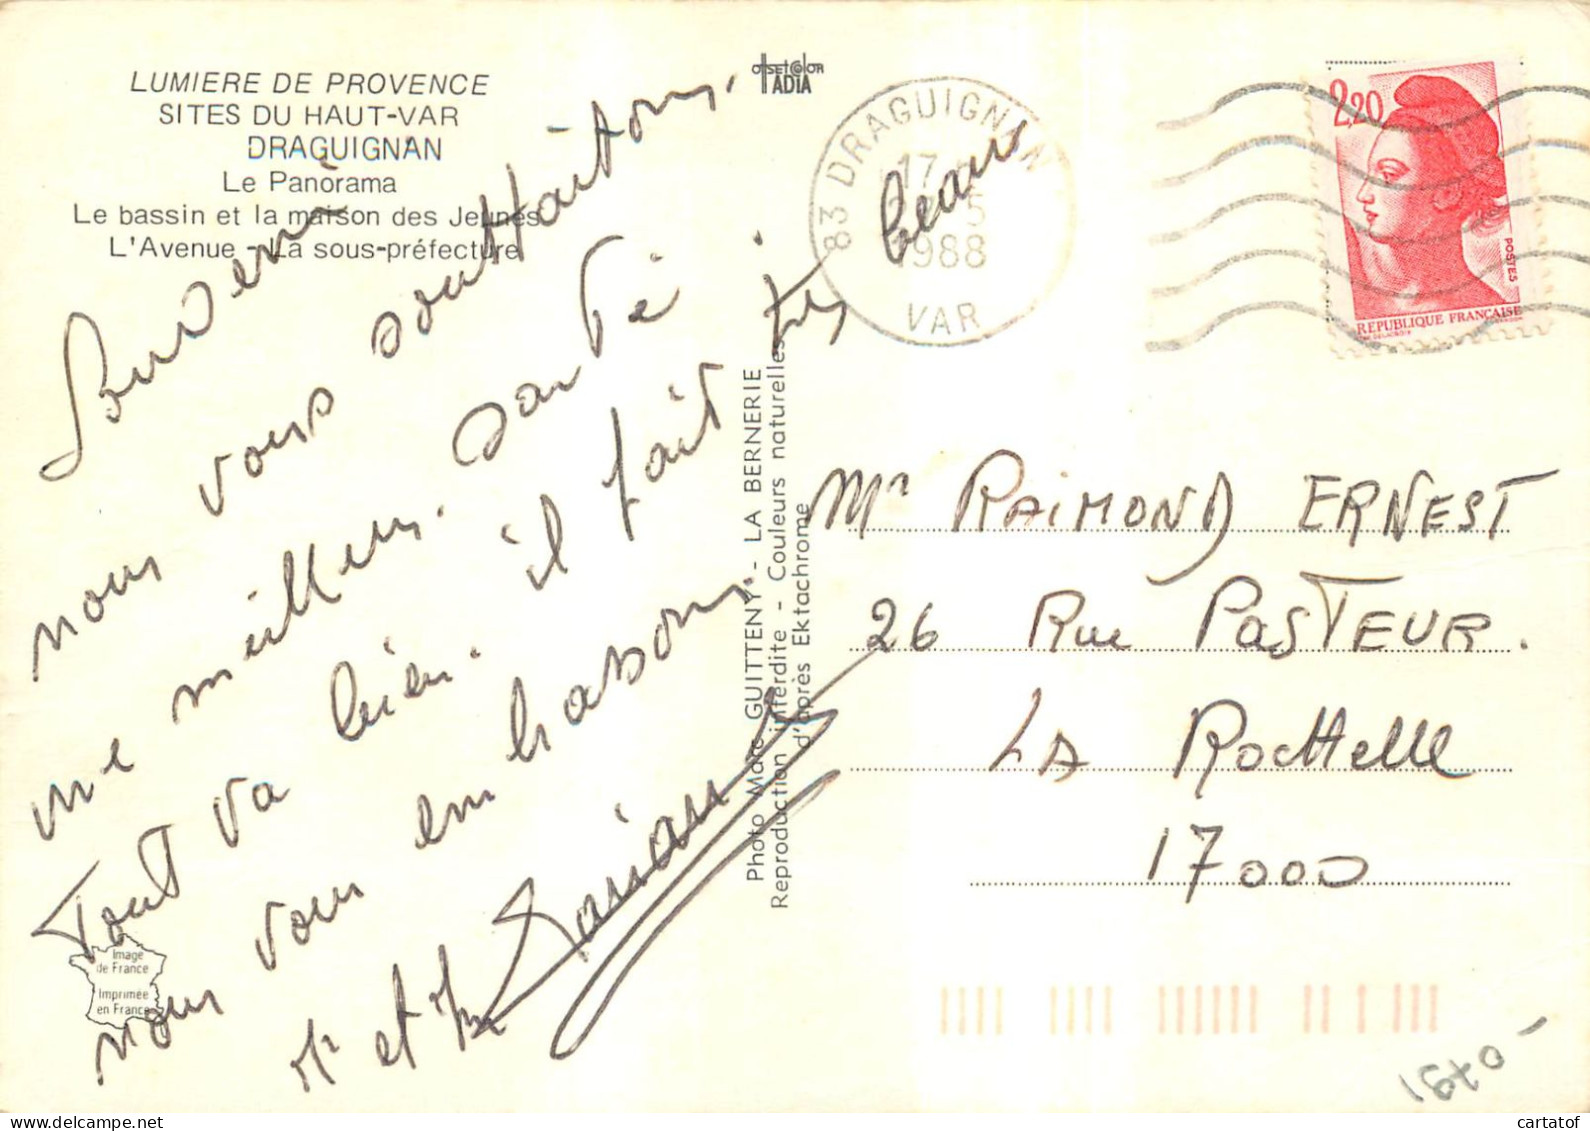 LUMIERE DE PROVENCE
SITES DU HAUT-VAR
DRAGUIGNAN
Le Panorama
Le bassin et la maison des Jeunes
L'Avenue - La sous-préfecture
OffsetColor
TADIA
83 DRAGUIGNAN
17
5
1988
VAR
2,20
POSTES
REPUBLIQUE FRANÇAISE
Souvenir
nous vous souHaitons.
une meilleur. santé
Tout va bien. il fait très beau
nous vous embrassons.
Mr et Mme
Photo Marc GUITTENY - LA BERNERIE
Reproduction interdite - Couleurs naturelles
d'après Ektachrome
Mr RAIMOND ERNEST
26 Rue PASTEUR.
LA ROCHelle
17000
Image
de France
Imprimée
en France
cartatof